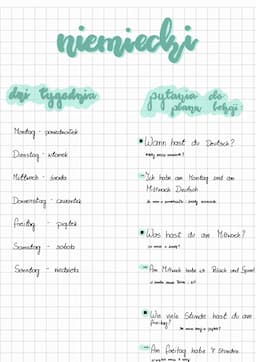 niemiecki
dni tygodnia
Montag - poniedziałek
Dienstag - wtorek
Mittwoch - środa
Donnerstag - czwartek
Freitag - piątek
Samstag - sobota
Sonntag - niedziela
pytania do
planu lekcji:
Wann hast du Deutsch?
Ich habe am Montag und am
Mittwoch Deutsch
Was hast du am Mittwoch?
Am Mittwoch habe ich
Wie viele Stunde hast du am
Freitag?
Am Freitag habe 7 Stunden